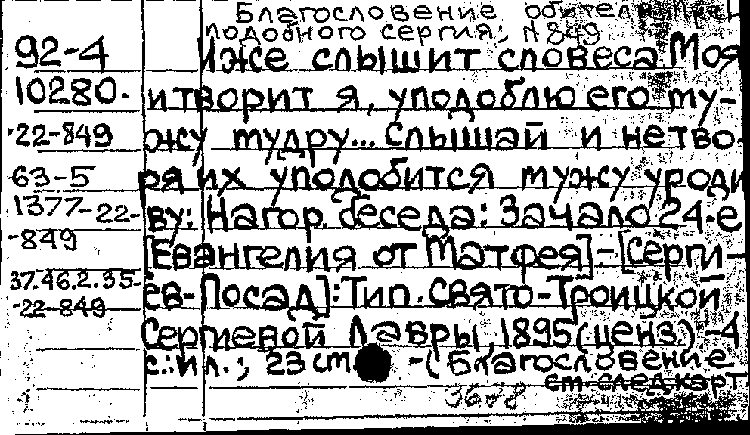 Благословение обители Пре
подобного сергия; N 849
92-4 Иже слышит словеса Моя
10280. и творит я, уподоблю его му-
22-849 жу мудру... Слышай и не тво-
63-5 ря их уподобится мужу уроди
1377-22- ву: Нагор. беседа: Зачало 24-е
-849 [Евангелия от Матфея]-[Серги-
37.46.2.35- ев-Посад]: Тип. Свято-Троицкой
-22-849 Сергиевой Лавры, 1895(ценз.)-4
с.: ил.; 23 cm -(Благословение
см след карт
3678